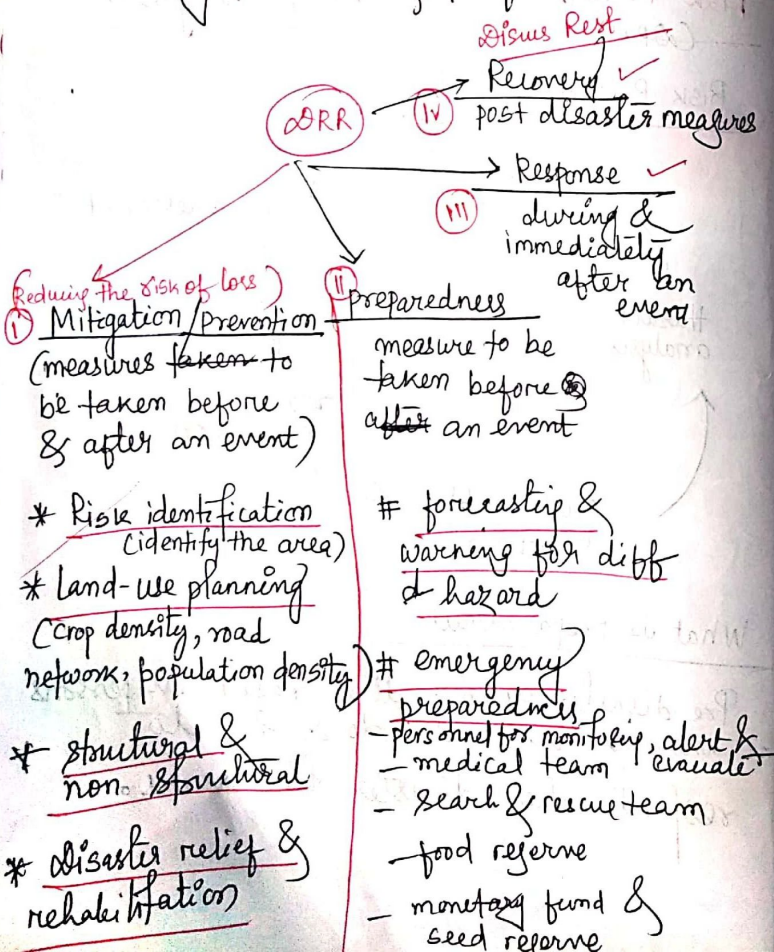 Disuss Rest
Recovery
IV
post disaster measures
DRR
Response
III
during &
immediately
after an
event
(Reducing the risk of loss)
I
Mitigation/prevention
(measures taken to
be taken before
& after an event)
* Risk identification
(identify the area)
* Land-use planning
(crop density, road
network, population density)
* structural &
non structural
* Disaster relief &
rehabilitation
II
preparedness
measure to be
taken before &
after an event
# forecasting &
warning for diff
d hazard
# emergency
preparedness
- personnel for monitoring, alert &
evauate
- medical team
- search & rescue team
- food reserve
- monetary fund &
seed reserve
What